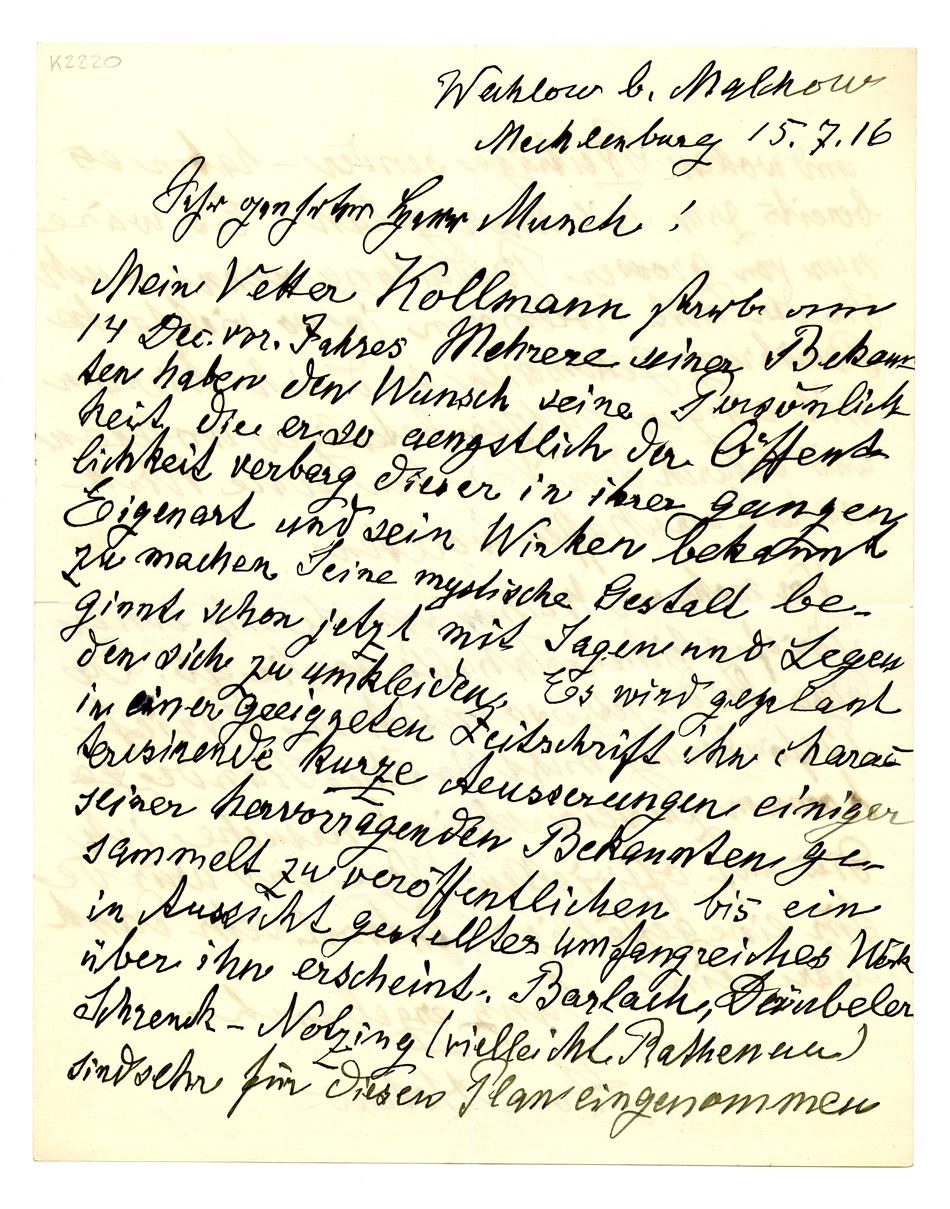 K2220
Wahlow b. Malchow
Mecklenburg 15.7.16
Sehr geehrter Herr Munch!
Mein Vetter Kollmann starb am
14 Dec. vor. Jahres Mehrere seiner Bekann-
ten haben den Wunsch seine Persönlich
keit, die er so aengstlich der Öffent-
lichkeit verbarg dieser in ihrer ganzen
Eigenart und sein Wirken bekannt
zu machen Seine mystische Gestalt be-
ginnt schon jetzt mit Sagen und Legen
den sich zu umkleiden. Es wird geplant
in einer geeigneten Zeitschrift ihn charac
terisirende kurze Aeusserungen einiger
seiner hervorragenden Bekannten ge-
sammelt zu veröffentlichen bis ein
in Aussicht gestelltes umfangreiches Werk
über ihn erscheint. Barlach, Däubeler
Schrenck-Notzing (vielleicht Rathenau)
sind sehr für diesen Plan eingenommen